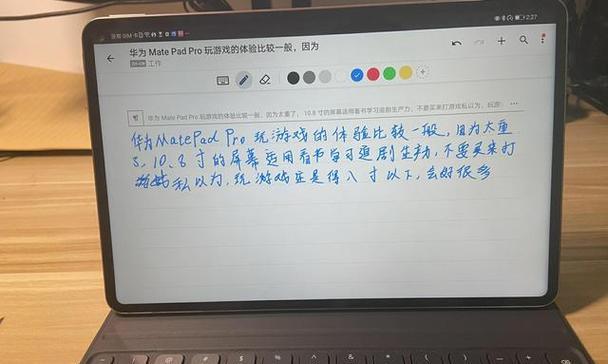 没有 SIM 卡
2:27
华为 Mate Pad Pro 玩游戏的体验比较一般，因为
工作
华为 Mate Pad Pro 玩游戏的体验比较一般，因为太重了，10.8 寸的屏幕适用看书学习追剧生产力，不要买来打游戏私以为，玩游
华为MatePad Pro 玩游戏的体验比较一般，因为太重
了，10.8 寸的屏幕适用看书学习追剧生产力，不要买来打
游戏私以为，玩游戏还是得八寸以下，会好很多